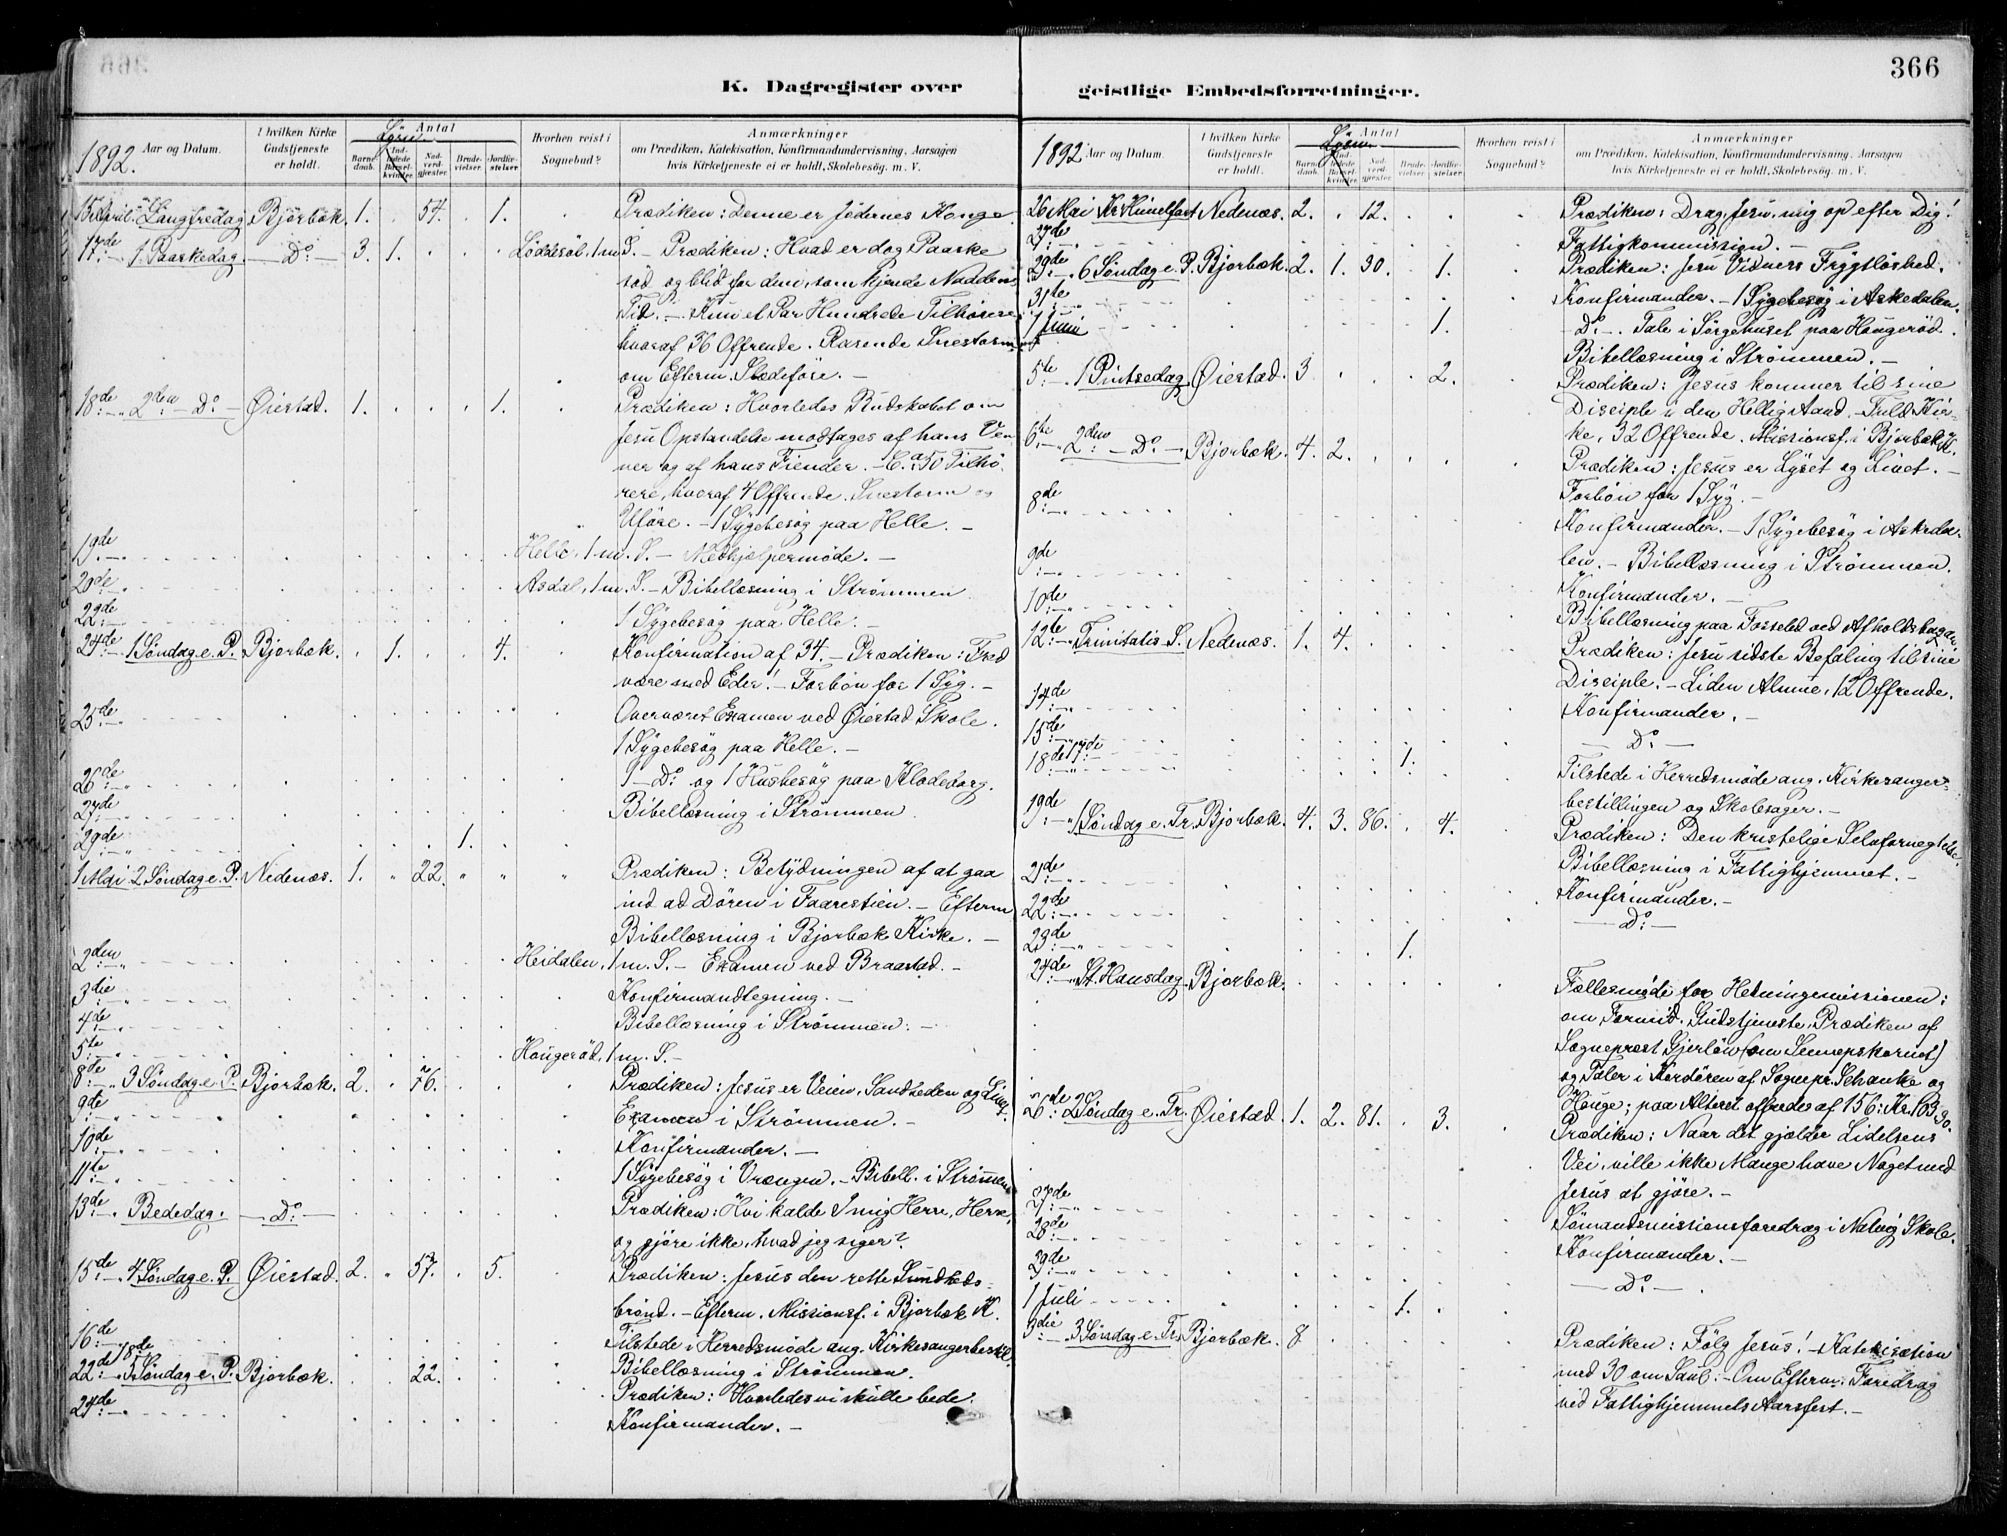 366
K. Dagregister over
1892.
Aar og Datum.
I hvilken Kirke Gudstjeneste er holdt.
Antal
Barnedaab.
Indledede Barselkvinder.
Nadverdgjester.
Brudevielser.
Jordfæstelser.
Hvorhen reist i Sognebud?
Anmærkninger
om Prædiken, Katekisation, Konfirmandundervisning, Aarsagen
hvis Kirketjeneste ei er holdt, Skolebesøg. m. V.
15de April. Langfredag. Bjorbæk. 1. 54. 1. Prædiken: Denne er Jødernes Konge.
17de 1. Paaskedag. Do. 3. 1. Løddesøl, 1 m. S. – Prædiken: Hvad er dog Paaske
sød og blid for dem, som kjende Naadens
Tid. – Kun et Par Hundrede Tilhørere,
hvoraf 36 Offrende. Rasende Snestorm
om Efterm. Slædeføre. –
18de 2den Do. – Øiestad. 1. 1. Prædiken: Hvorledes Budskabet om
Jesu Opstandelse modtages af hans Ven-
ner og af hans Fiender. – Ca. 50 Tilhø-
rere, hvoraf 4 Offrende. Snestorm og
Uføre. – 1 Sygebesøg paa Helle. –
19de Helle, 1 m. S. – Medhjælpermøde. –
20de Asdal, 1 m. S. – Bibellæsning i Strømmen.
22de 1 Sygebesøg paa Helle. –
24de 1 Søndag e. P. Bjorbæk. 1. 4. Konfirmation af 34. – Prædiken: Fred
være med Eder! – Forbøn for 1 Syg. –
25de Overværet Examen ved Øiestad Skole.
1 Sygebesøg paa Helle. –
26de 1 – Do. og 1 Husbesøg paa Klodeborg.
27de Bibellæsning i Strømmen.
29de 1.
1 Mai 2 Søndag e. P. Nedenæs. 1. 22. Prædiken: Betydningen af at gaa
ind ad Døren i Faarestien. – Efterm.
Bibellæsning i Bjorbæk Kirke. –
2den Heidalen, 1 m. S. – Examen ved Braastad. –
3die Konfirmandtegning. –
4de Bibellæsning i Strømmen. –
5te Hougerød, 1 m. S. –
8de 3 Søndag e. P. Bjorbæk. 2. 76. Prædiken: Jesus er Veien, Sandheden og Livet.
9de Examen i Strømmen. –
10de Konfirmander. –
11te 1 Sygebesøg i Vrængen. – Bibell. i Strømmen
13de Bededag. – Do. – Prædiken: Hvi kalde I mig Herre, Herre,
og gjøre ikke, hvad jeg siger?
15de 4 Søndag e. P. Øiestad. 2. 57. 5. Prædiken: Jesus den rette Sundheds-
brønd. – Efterm. Missionsf. i Bjorbæk K.
16de Tilstede i Herredsmøde ang. Kirkesangerbestil.
18de Bibellæsning i Strømmen.
22de 5 Søndag e. P. Bjorbæk. 22. Prædiken: Hvorledes vi skulle bede.
24de Konfirmander. –
geistlige Embedsforretninger.
1892
Aar og Datum.
I hvilken Kirke Gudstjeneste er holdt.
Antal
Barnedaab.
Indledede Barselkvinder.
Nadverdgjester.
Brudevielser.
Jordfæstelser.
Hvorhen reist i Sognebud?
Anmærkninger
om Prædiken, Katekisation, Konfirmandundervisning, Aarsagen
hvis Kirketjeneste ei er holdt, Skolebesøg. m. V.
26 Mai Kr. Himelfart Nedenæs. 2. 12. Prædiken: Drag, Jesu, mig op efter Dig!
27de Fattigkommission. –
29de 6 Søndag e. P. Bjorbæk. 2. 1. 30. 1. Prædiken: Jesu Vidners Frygtløshed.
31te Konfirmander. – 1 Sygebesøg i Askedalen.
1 Juni 1. – Do. – Tale i Sørgehuset paa Hougerød.
Bibellæsning i Strømmen. –
5te 1 Pintsedag. Øiestad. 3 2. Prædiken: Jesus kommer til sine
Disciple i den Hellig Aand. – Fuld Kir-
ke, 32 Offrende. Missionsf. i Bjorbæk K.
6te 2den Do. – Bjorbæk. 4. 2. Prædiken: Jesus er Lyset og Livet. –
Forbøn for 1 Syg. –
8de Konfirmander. – 1 Sygebesøg i Askeda-
len. – Bibellæsning i Strømmen.
9de Konfirmander. –
10de Bibellæsning paa Fosseled ved Afholdsbagen.
12te Trinitatis S. Nedenæs. 1. 4. Prædiken: Jesu sidste Befaling til sine
Disciple. – Liden Almue, 12 Offrende.
14de Konfirmander. –
15de – Do. –
17de
18de 1. Tilstede i Herredsmøde ang. Kirkesanger-
bestillingen og Skolesager. –
19de 1 Søndag e. Tr. Bjorbæk. 4. 3. 86. 4. Prædiken: Den kristelige Selvfornegtelse.
21de Bibellæsning i Fattighjemmet. –
22de Konfirmander. –
23de 1. – Do. –
24de St. Hansdag. Bjorbæk. Fællesmøde for Hedningemissionen:
om Formid. Gudstjeneste, Prædiken af
Sogneprest Gjerløw (om Sennepskornet)
og Taler i Kordøren af Sognepr. Schanke og
Houge; paa Alteret offredes af 156: Kr. 103,30.
26de 2 Søndag e. Tr. Øiestad. 1. 2. 81. 3. Prædiken: Naar det gjælder Lidelsens
Vei, ville ikke Mange have Noget med
Jesus at gjøre. –
27de Sømandsmissionsforedrag i Natvig Skole.
28de Konfirmander. –
29de – Do. –
1 Juli 1.
3die 3 Søndag e. Tr. Bjorbæk. 8 Prædiken: Følg Jesus! – Katekisation
med 30 om Saul. – Om Efterm. Foredrag
ved Fattighjemmets Aarsfest. –